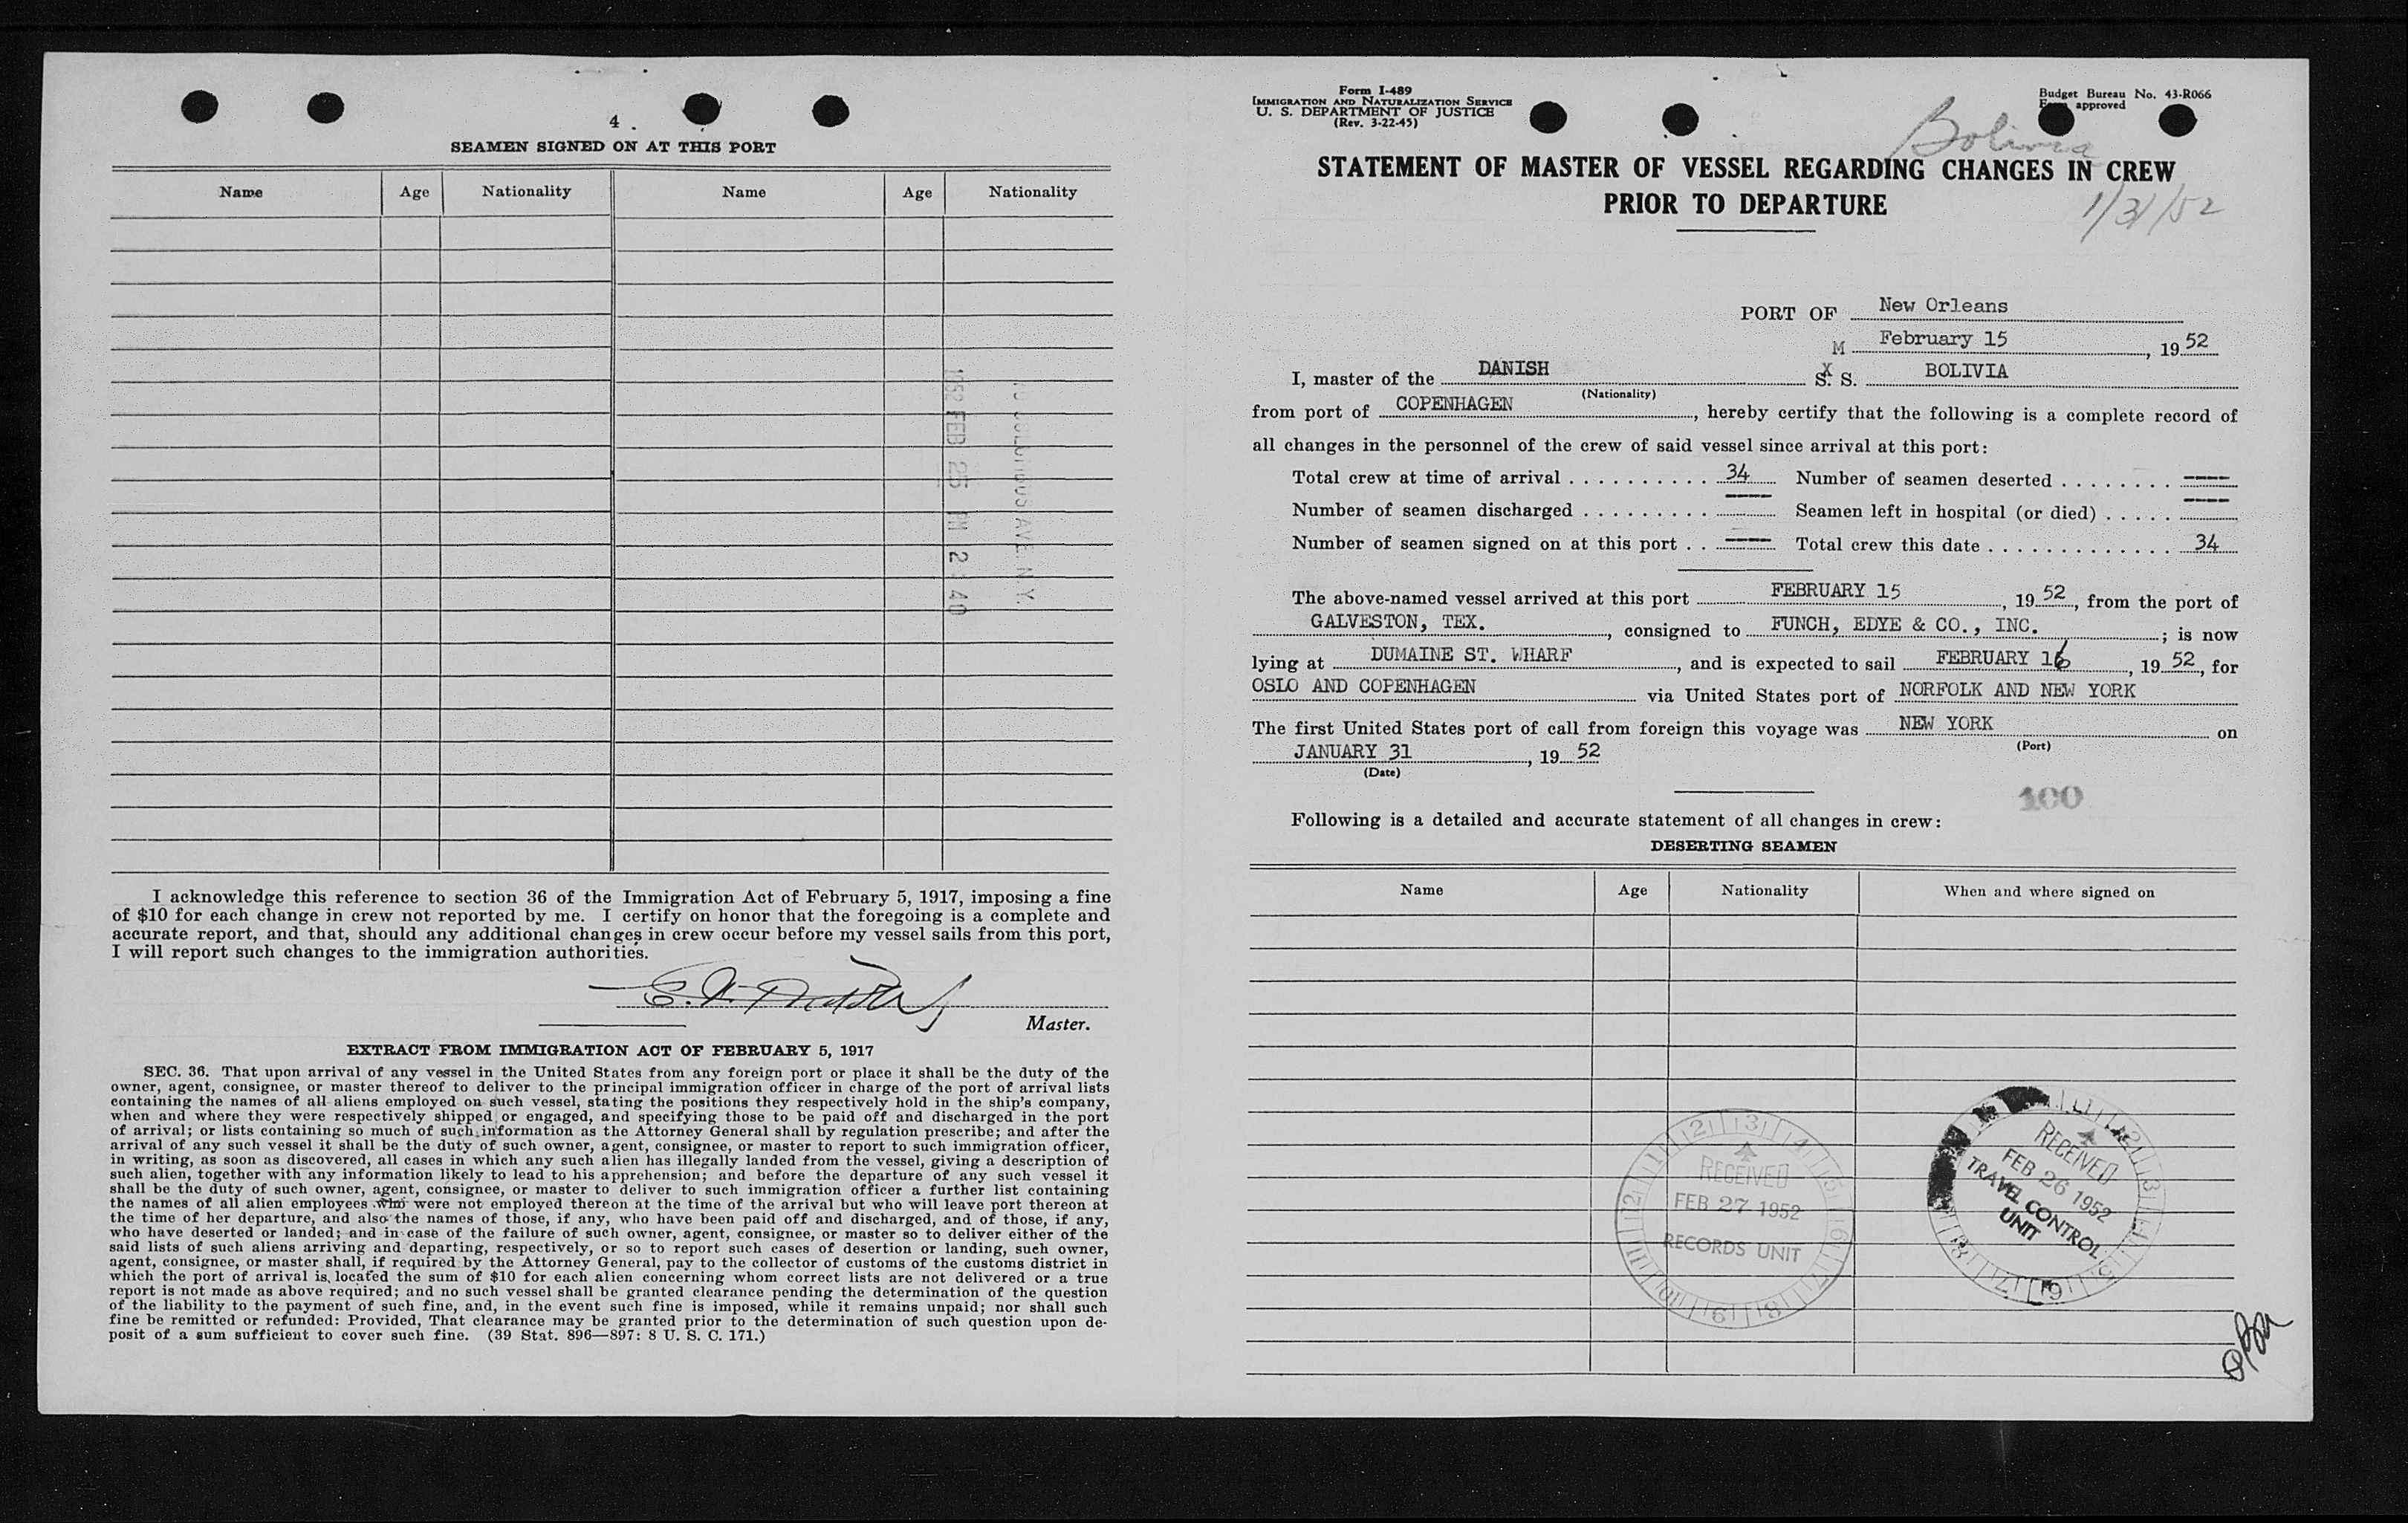 4 .
SEAMEN SIGNED ON AT THIS PORT
Name Age Nationality Name Age Nationality
1952 FEB 25 PM 2 40
COLUMBUS AVE. N.Y.
I acknowledge this reference to section 36 of the Immigration Act of February 5, 1917, imposing a fine
of $10 for each change in crew not reported by me. I certify on honor that the foregoing is a complete and
accurate report, and that, should any additional changes in crew occur before my vessel sails from this port,
I will report such changes to the immigration authorities.
Master.
EXTRACT FROM IMMIGRATION ACT OF FEBRUARY 5, 1917
SEC. 36. That upon arrival of any vessel in the United States from any foreign port or place it shall be the duty of the
owner, agent, consignee, or master thereof to deliver to the principal immigration officer in charge of the port of arrival lists
containing the names of all aliens employed on such vessel, stating the positions they respectively hold in the ship's company,
when and where they were respectively shipped or engaged, and specifying those to be paid off and discharged in the port
of arrival; or lists containing so much of such information as the Attorney General shall by regulation prescribe; and after the
arrival of any such vessel it shall be the duty of such owner, agent, consignee, or master to report to such immigration officer,
in writing, as soon as discovered, all cases in which any such alien has illegally landed from the vessel, giving a description of
such alien, together with any information likely to lead to his apprehension; and before the departure of any such vessel it
shall be the duty of such owner, agent, consignee, or master to deliver to such immigration officer a further list containing
the names of all alien employees who were not employed thereon at the time of the arrival but who will leave port thereon at
the time of her departure, and also the names of those, if any, who have been paid off and discharged, and of those, if any,
who have deserted or landed; and in case of the failure of such owner, agent, consignee, or master so to deliver either of the
said lists of such aliens arriving and departing, respectively, or so to report such cases of desertion or landing, such owner,
agent, consignee, or master shall, if required by the Attorney General, pay to the collector of customs of the customs district in
which the port of arrival is located the sum of $10 for each alien concerning whom correct lists are not delivered or a true
report is not made as above required; and no such vessel shall be granted clearance pending the determination of the question
of the liability to the payment of such fine, and, in the event such fine is imposed, while it remains unpaid; nor shall such
fine be remitted or refunded: Provided, That clearance may be granted prior to the determination of such question upon de-
posit of a sum sufficient to cover such fine. (39 Stat. 896—897: 8 U. S. C. 171.)
Form I-489
IMMIGRATION AND NATURALIZATION SERVICE
U. S. DEPARTMENT OF JUSTICE
(Rev. 3-22-45)
Budget Bureau No. 43-R066
approved
Bolivia
STATEMENT OF MASTER OF VESSEL REGARDING CHANGES IN CREW
PRIOR TO DEPARTURE
1/31/52
PORT OF New Orleans
February 15, 1952
I, master of the DANISH M S. S. BOLIVIA
(Nationality)
from port of COPENHAGEN, hereby certify that the following is a complete record of
all changes in the personnel of the crew of said vessel since arrival at this port:
Total crew at time of arrival . . . . . . . . . . 34 Number of seamen deserted . . . . . . . . ----
Number of seamen discharged . . . . . . . . . ---- Seamen left in hospital (or died) . . . . . ----
Number of seamen signed on at this port . . ---- Total crew this date . . . . . . . . . . . . . 34
The above-named vessel arrived at this port FEBRUARY 15, 1952, from the port of
GALVESTON, TEX., consigned to FUNCH, EDYE & CO., INC.; is now
lying at DUMAINE ST. WHARF, and is expected to sail FEBRUARY 16, 1952, for
OSLO AND COPENHAGEN via United States port of NORFOLK AND NEW YORK
The first United States port of call from foreign this voyage was NEW YORK on
(Port)
JANUARY 31, 1952
(Date)
100
Following is a detailed and accurate statement of all changes in crew:
DESERTING SEAMEN
Name Age Nationality When and where signed on
RECEIVED
FEB 27 1952
RECORDS UNIT
RECEIVED
FEB 26 1952
TRAVEL CONTROL
UNIT